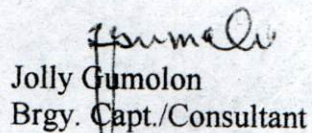 Jolly Gumolon
Brgy. Capt./Consultant